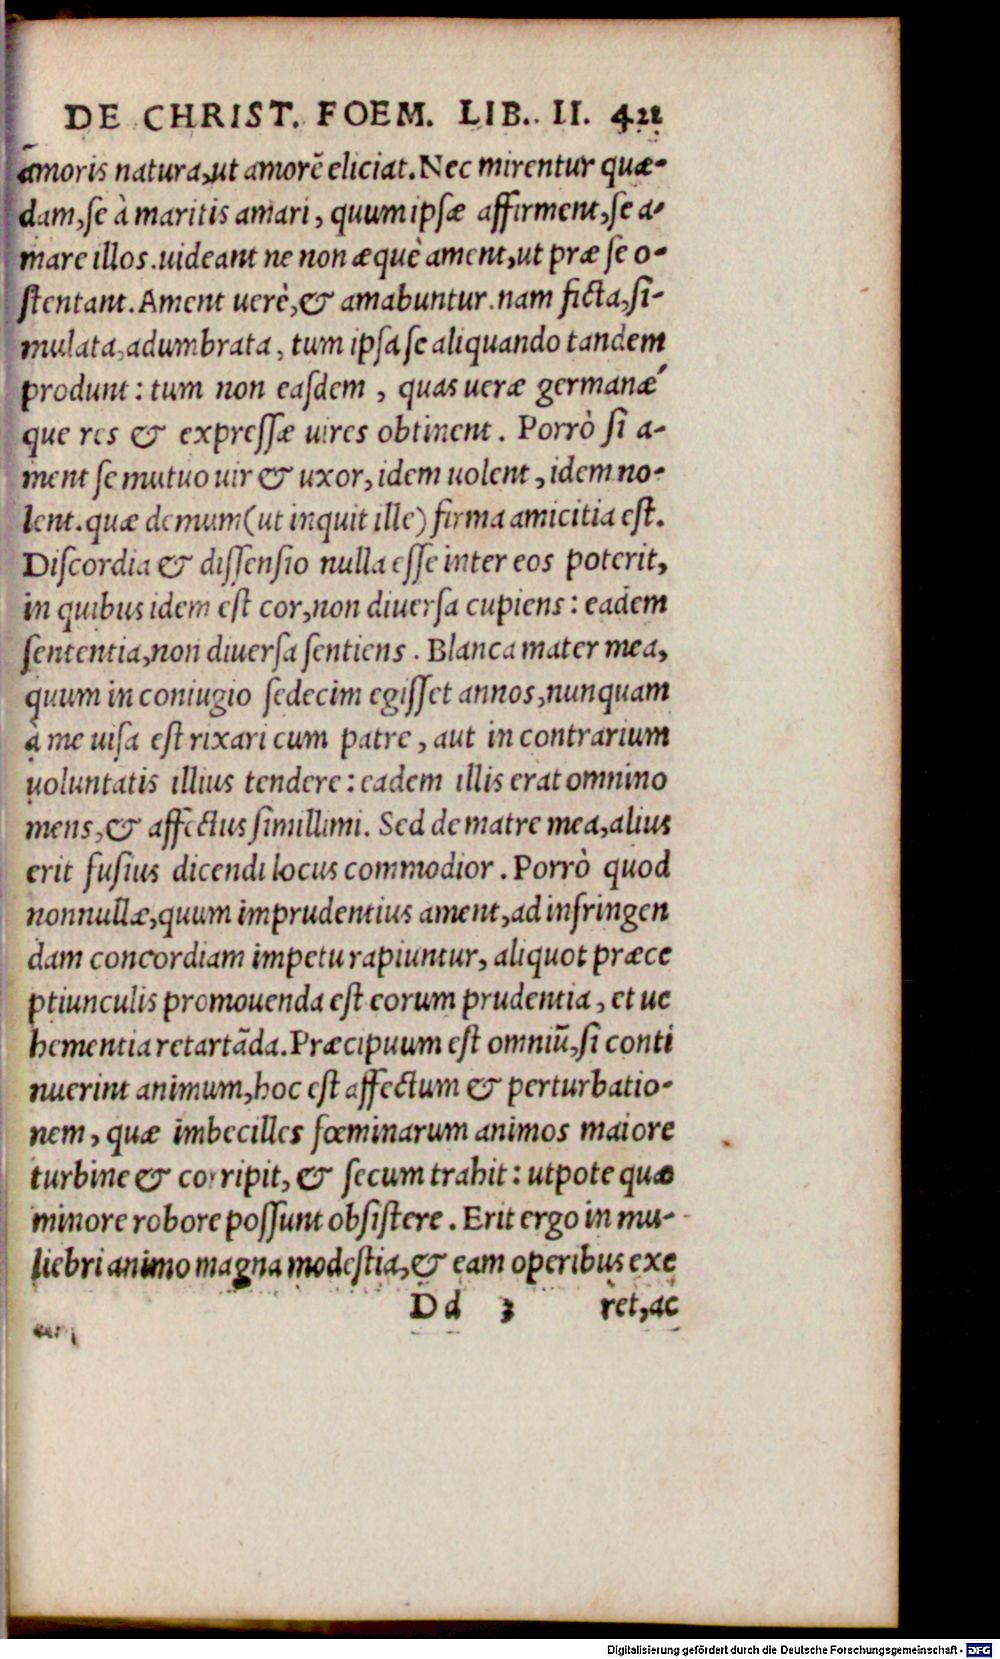 DE CHRIST. FOEM. LIB. II. 421
amoris natura,ut amorē eliciat. Nec mirentur quæ-
dam,se à maritis amari, quum ipsæ affirment,se a-
mare illos.uideant ne non æquè ament,ut præ se o-
stentant. Ament uerè,& amabuntur.nam ficta,si-
mulata,adumbrata, tum ipsa se aliquando tandem
produnt: tum non easdem, quas ueræ germanæ
que res & expressæ uires obtinent. Porrò si a-
ment se mutuo uir & uxor, idem uolent, idem no-
lent.quæ demum (ut inquit ille) firma amicitia est.
Discordia & dissensio nulla esse inter eos poterit,
in quibus idem est cor,non diuersa cupiens: eadem
sententia,non diuersa sentiens. Blanca mater mea,
quum in coniugio sedecim egisset annos,nunquam
à me uisa est rixari cum patre, aut in contrarium
uoluntatis illius tendere: eadem illis erat omnino
mens,& affectus simillimi. Sed de matre mea,alius
erit fusius dicendi locus commodior. Porrò quod
nonnullæ,quum imprudentius ament,ad infringen
dam concordiam impetu rapiuntur, aliquot præce
ptiunculis promouenda est eorum prudentia, et ue
hementia retartāda. Præcipuum est omniū,si conti
nuerint animum,hoc est affectum & perturbatio-
nem, quæ imbecilles fœminarum animos maiore
turbine & corripit, & secum trahit: utpote quæ
minore robore possunt obsistere. Erit ergo in mu-
liebri animo magna modestia,& eam operibus exe
Dd 3 ret,ac
Digitalisierung gefördert durch die Deutsche Forschungsgemeinschaft - DFG